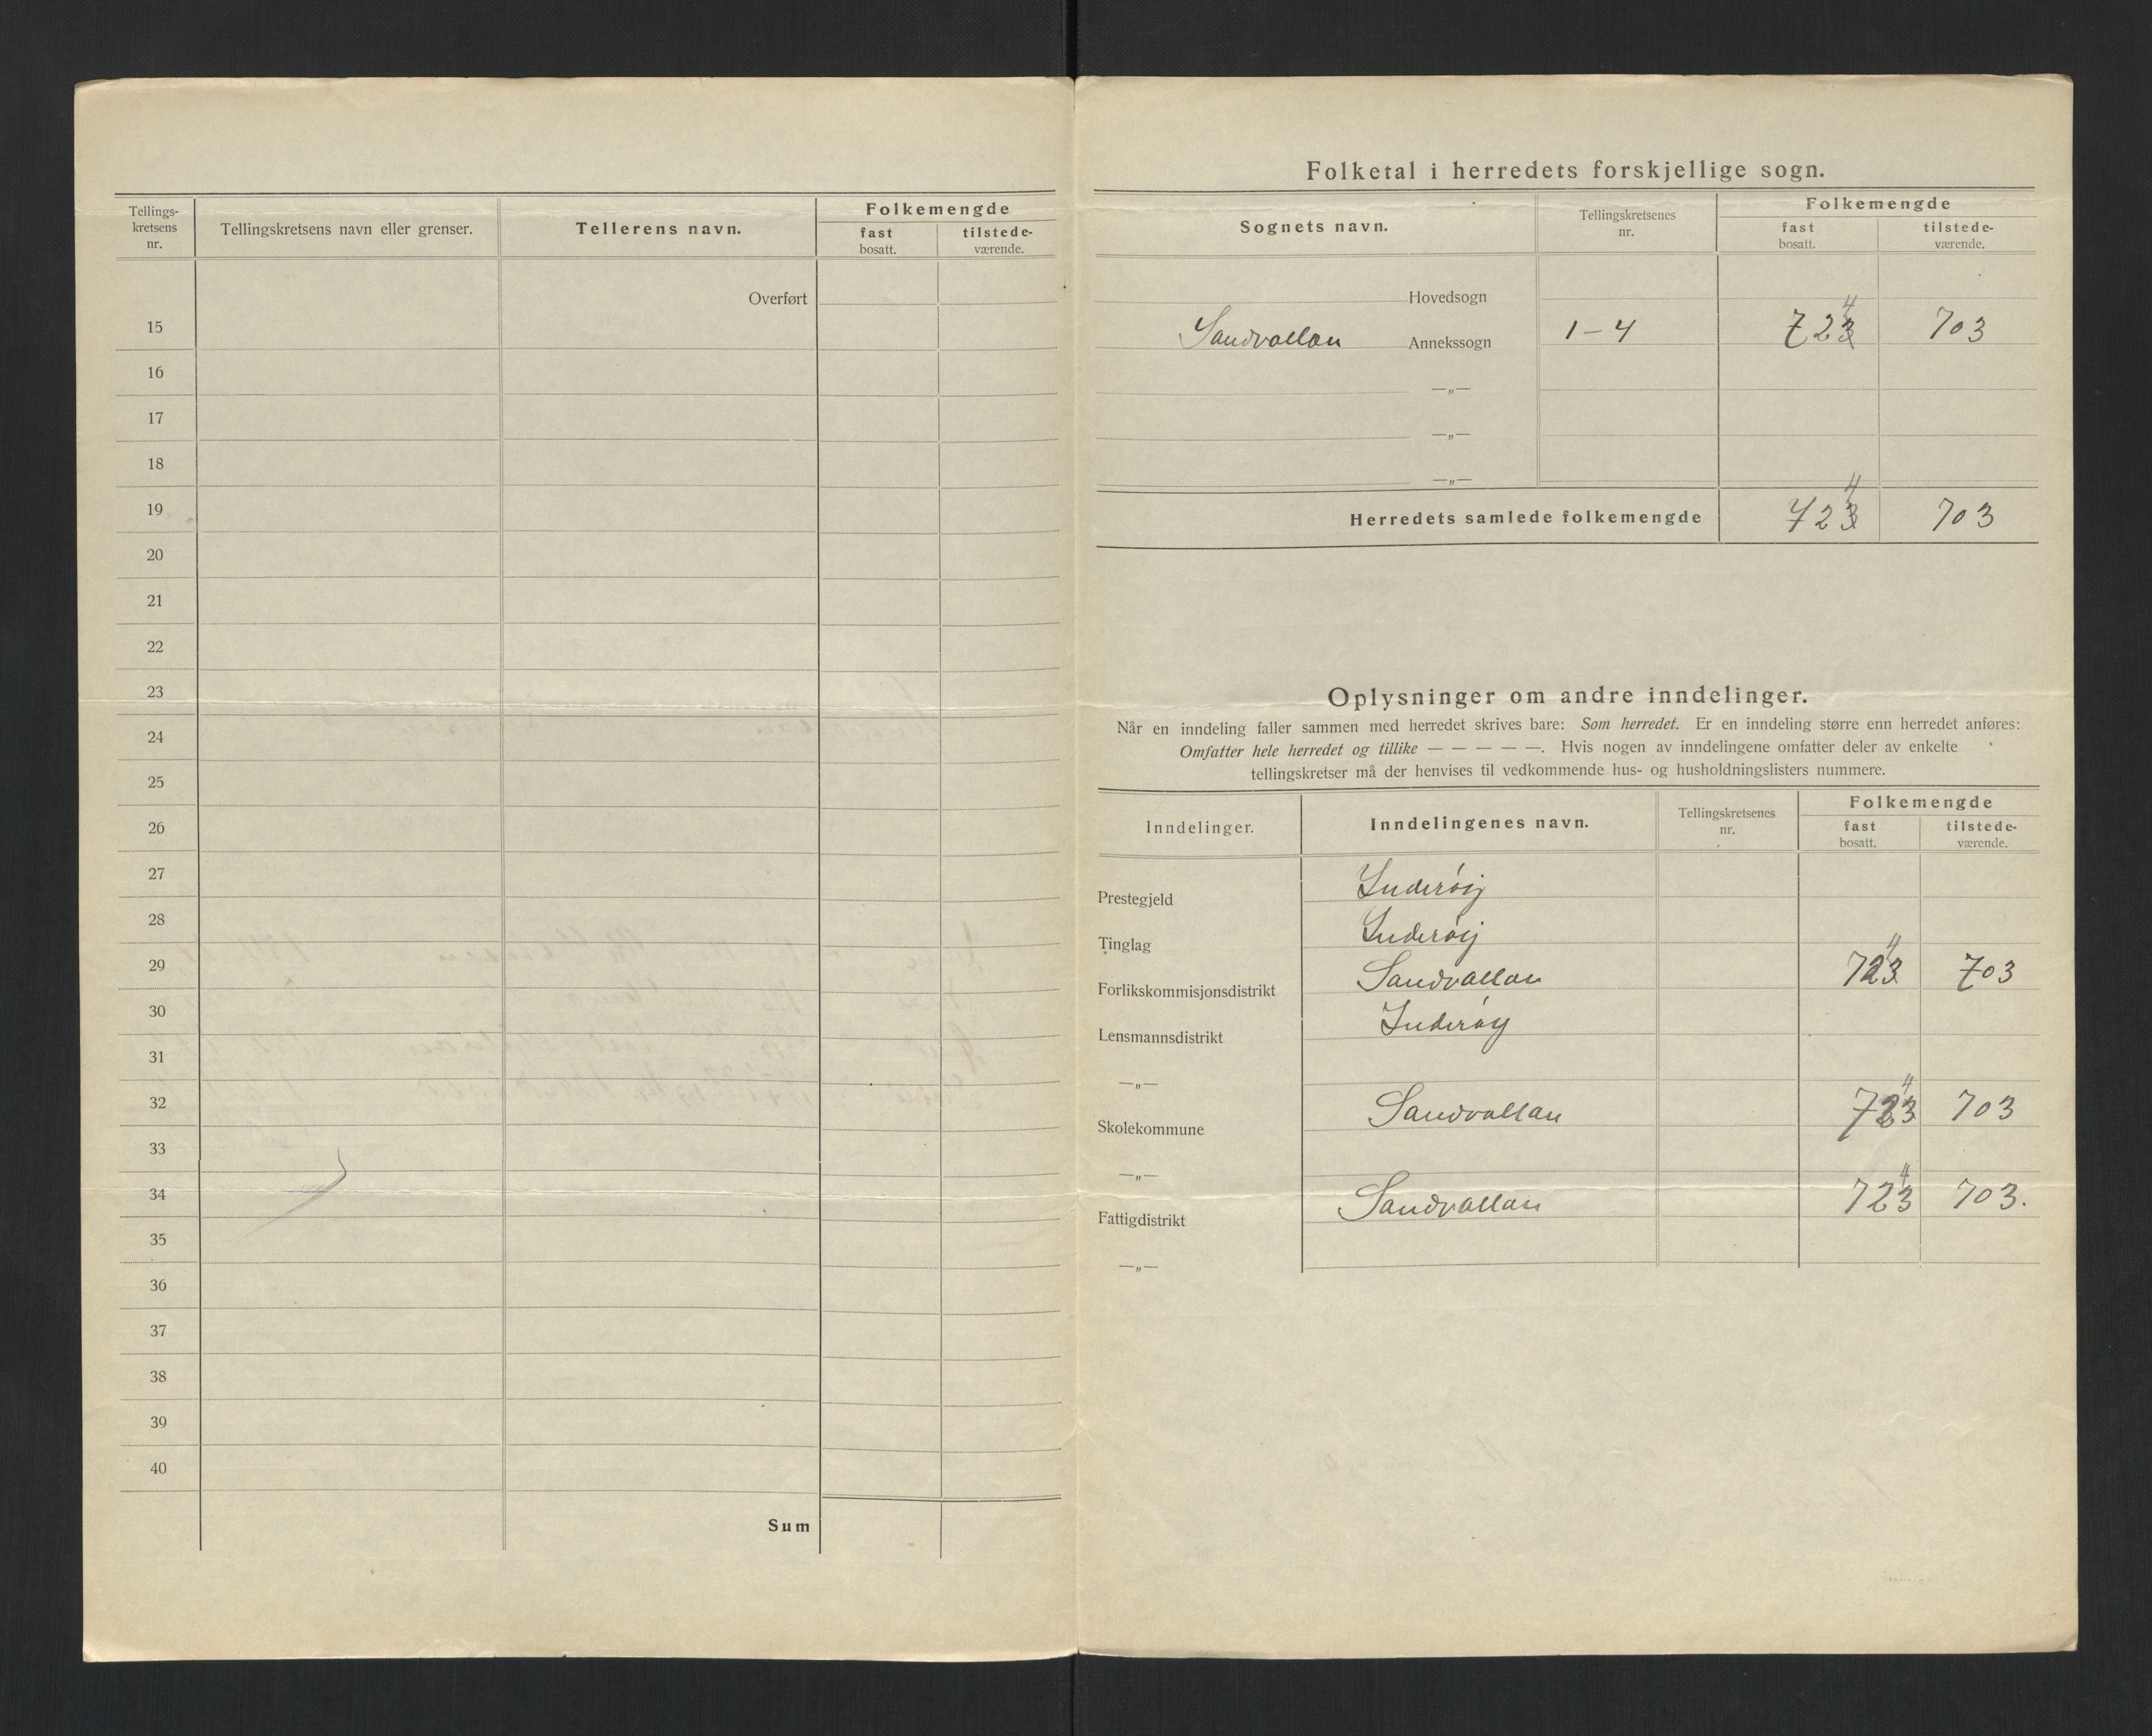 Tellings-
kretsens
nr.
Tellingskretsens navn eller grenser.
Tellerens navn.
Folkemengde
fast
bosatt.
tilstede-
værende.
Overført
15
16
17
18
19
20
21
22
23
24
25
26
27
28
29
30
31
32
33
34
35
36
37
38
39
40
Sum
Folketal i herredets forskjellige sogn.
Sognets navn.
Tellingskretsenes
nr.
Folkemengde
fast
bosatt.
tilstede-
værende.
Hovedsogn
4
Sandvollan Annekssogn 1-4 723 703
—„—
—„—
—„—
4
Herredets samlede folkemengde 723 703
Oplysninger om andre inndelinger.
Når en inndeling faller sammen med herredet skrives bare: Som herredet. Er en inndeling større enn herredet anføres:
Omfatter hele herredet og tillike — — — — —. Hvis nogen av inndelingene omfatter deler av enkelte
tellingskretser må der henvises til vedkommende hus- og husholdningslisters nummere.
Inndelinger.
Inndelingenes navn.
Tellingskretsenes
nr.
Folkemengde
fast
bosatt.
tilstede-
værende.
Prestegjeld Inderøij
Tinglag Inderøij
4
Forlikskommisjonsdistrikt Sandvollan 723 703
Lensmannsdistrikt Inderøy
—„—
4
Skolekommune Sandvollan 723 703
—„—
4
Fattigdistrikt Sandvollan 723 703.
—„—